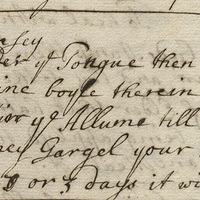 sey
der yᵉ Tongue then
ine boyle therein
yᵉ Allume till
ney Gargel your
or 3 days it wi